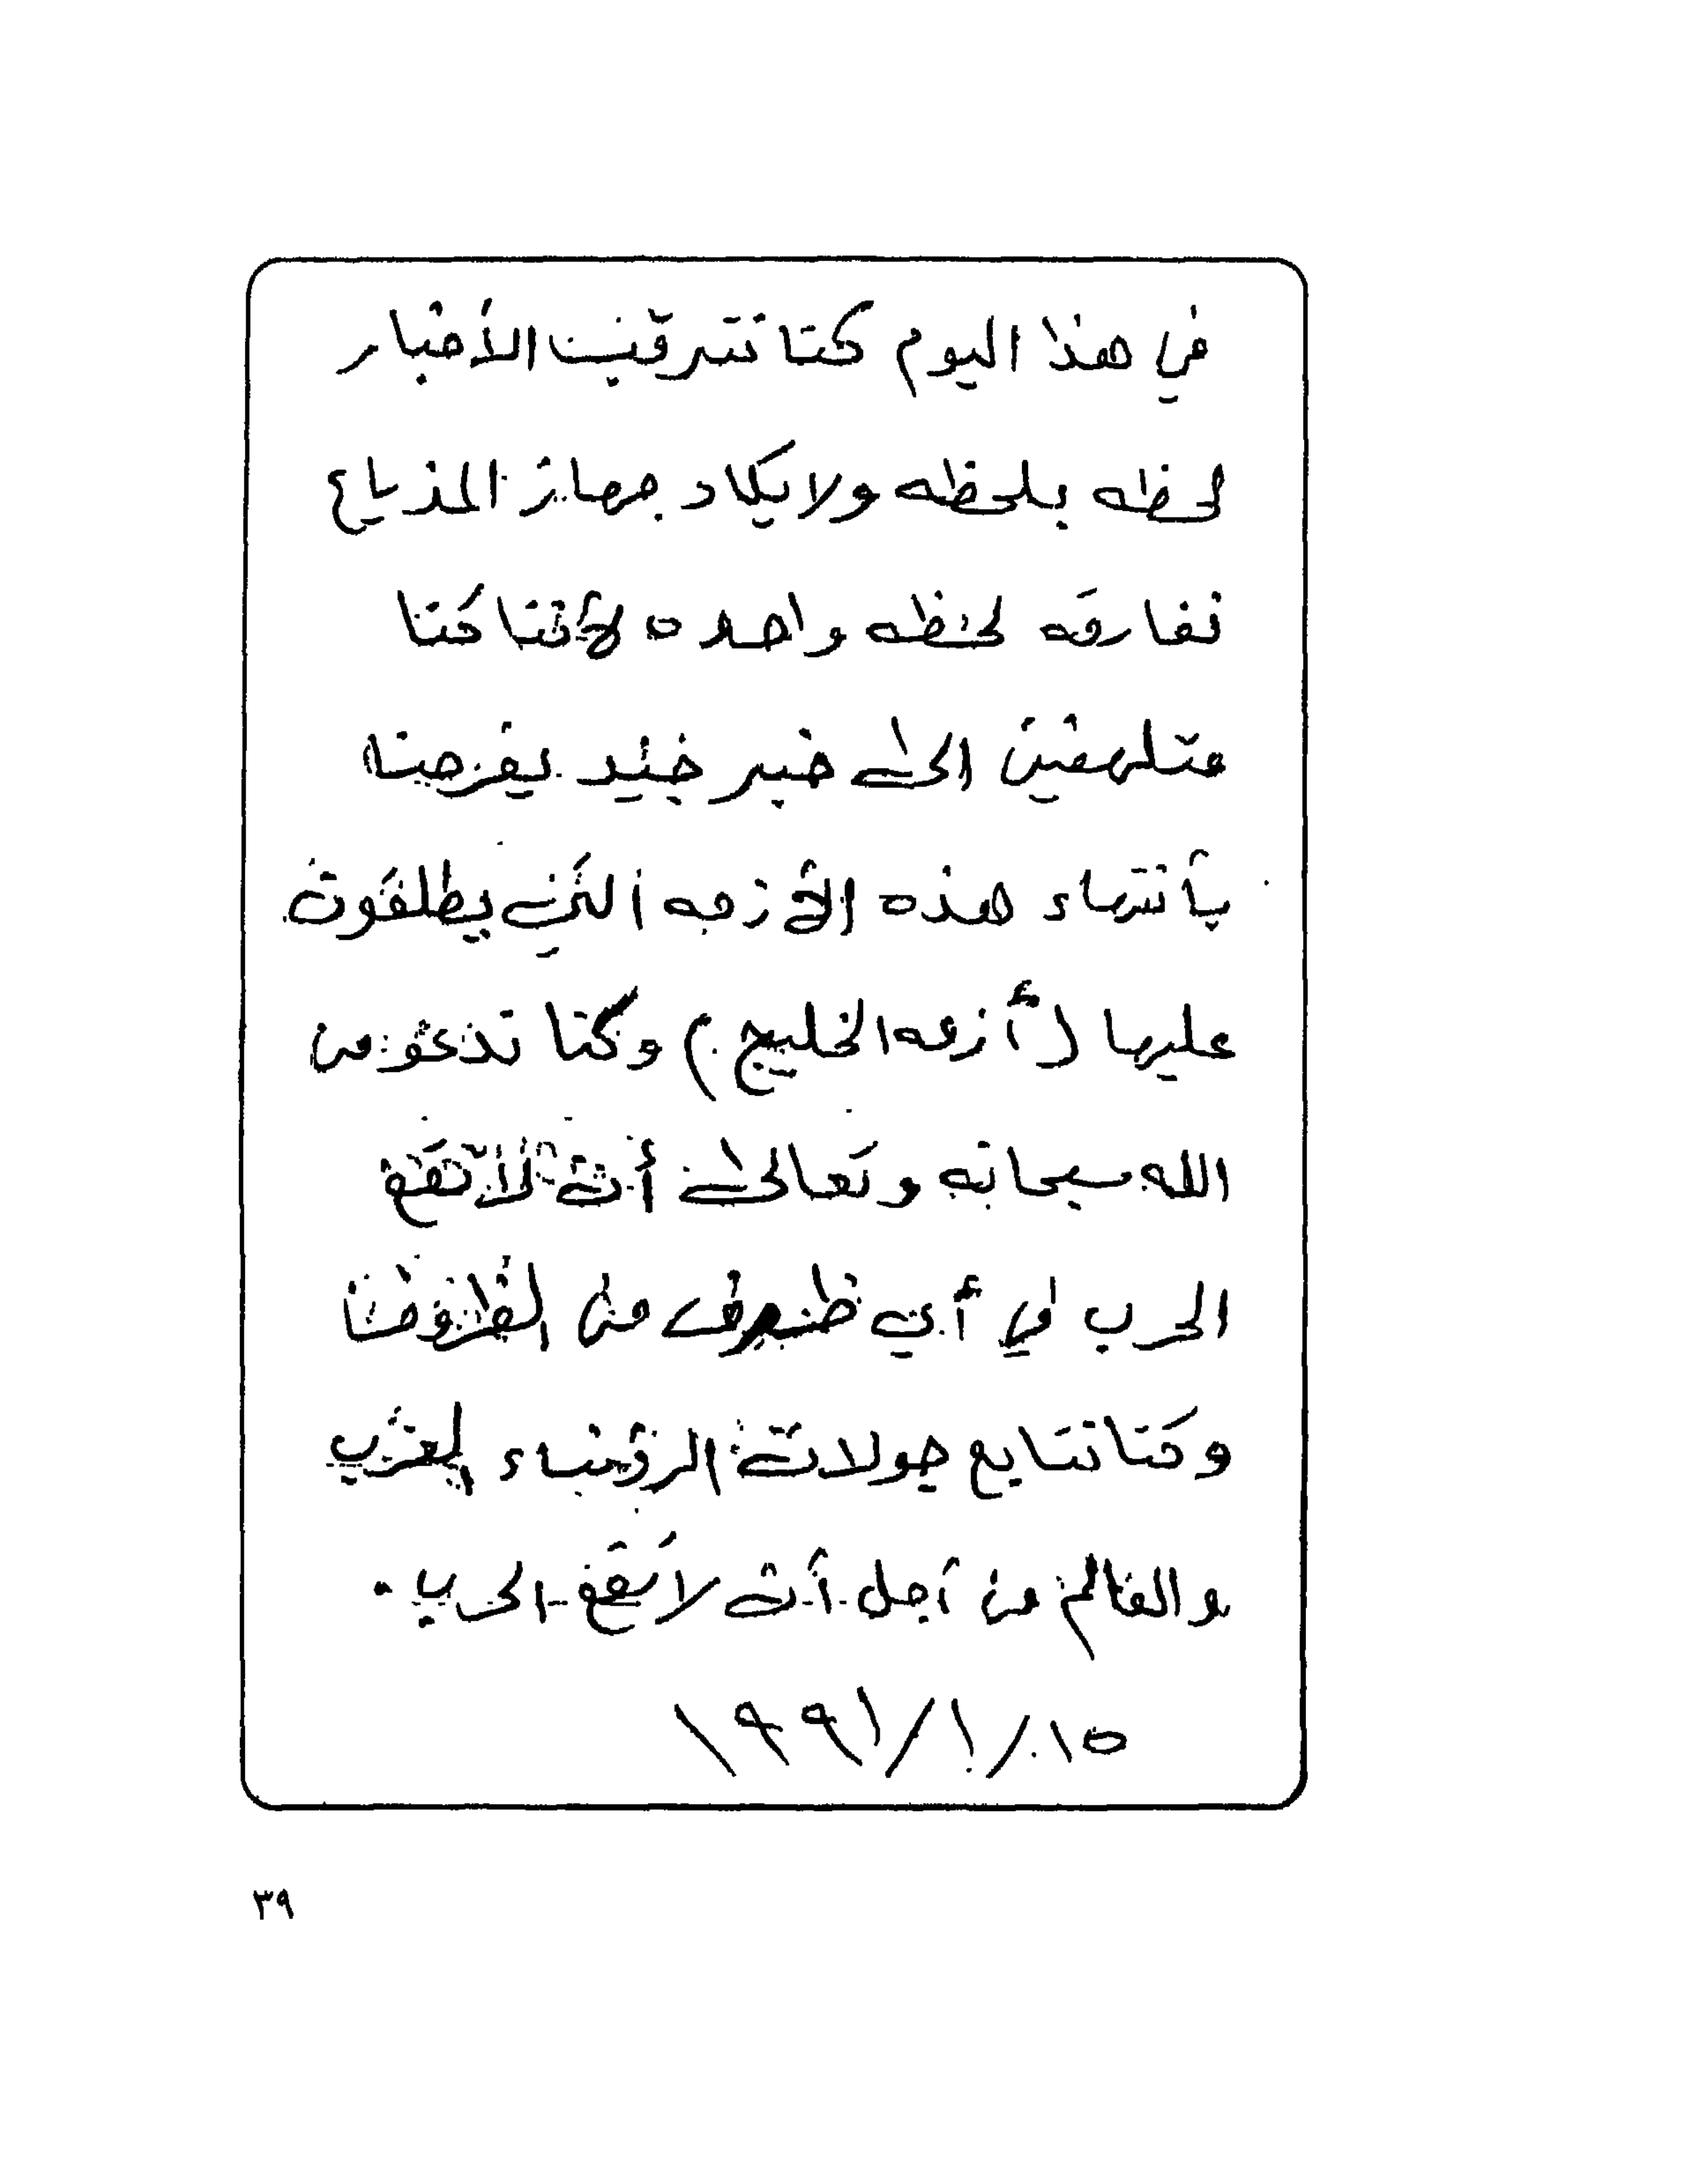 في هذا اليوم كنا نترقب الأخبار
لحظه بلحظه ولا يكاد جهاز المذياع
نفارقه لحظه واحده لأننا كنا
متلهفين الى خبر جيد يفرحنا
بأنتهاء هذه الأزمه التي يطلقون
عليها (أزمه الخليج) وكنا ندعو من
الله سبحانه وتعالى أن لا تقع
الحرب في أي ظرف من الظروف
وكنا نتابع جولات الرؤساء العرب
والعالم من أجل أن لا تقع الحرب .
١٥/١/١٩٩١
٣٩